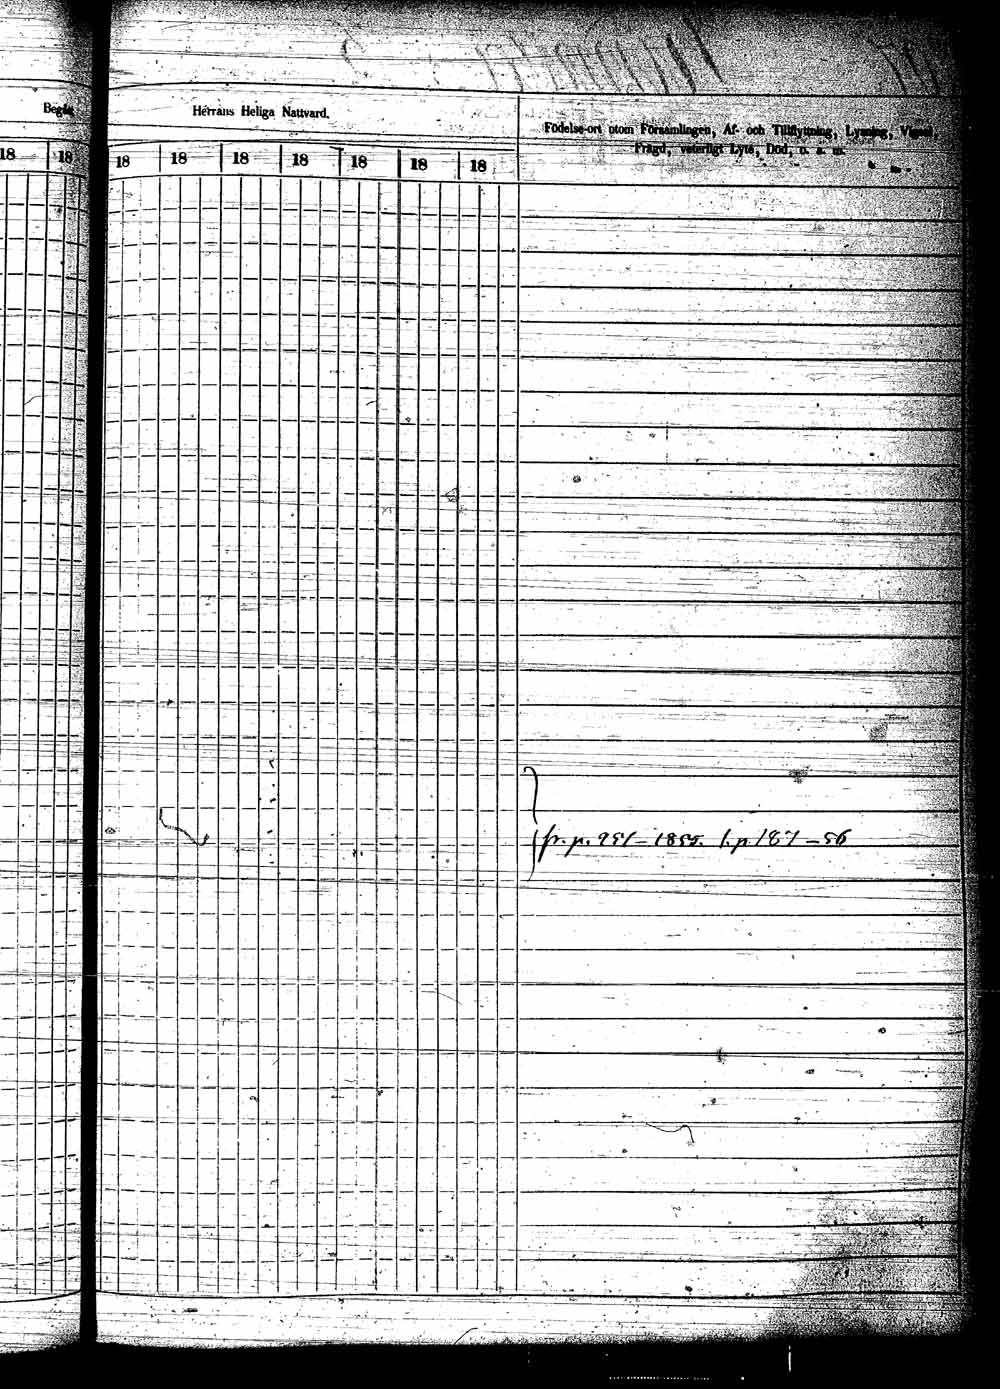 Begås
Herrans Heliga Nattvard.
Födelse-ort utom Församlingen, Af- och Tillflyttning, Lysning, Vigsel,
Frägd, veterligt Lyte, Död, o. s. m.
18 18 18 18 18 18 18 18 18
fr. p. 951 – 1855. l. p. 187 – 56